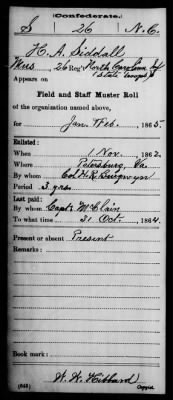 Confederate.
S 26 N.C.
H. A. Siddall
Mus., 26 Reg't North Carolina Inf.
(State Troops)
Appears on
Field and Staff Muster Roll
of the organization named above,
for Jan. & Feb., 1865.
Enlisted:
When 1 Nov., 1862.
Where Petersburg, Va.
By whom Col H. K. Burgwyn
Period 3 yrs.
Last paid:
By whom Capt. McClain
To what time 31 Oct., 1864.
Present or absent Present
Remarks:
Book mark:
W. H. Hibbard
(642) Copyist.